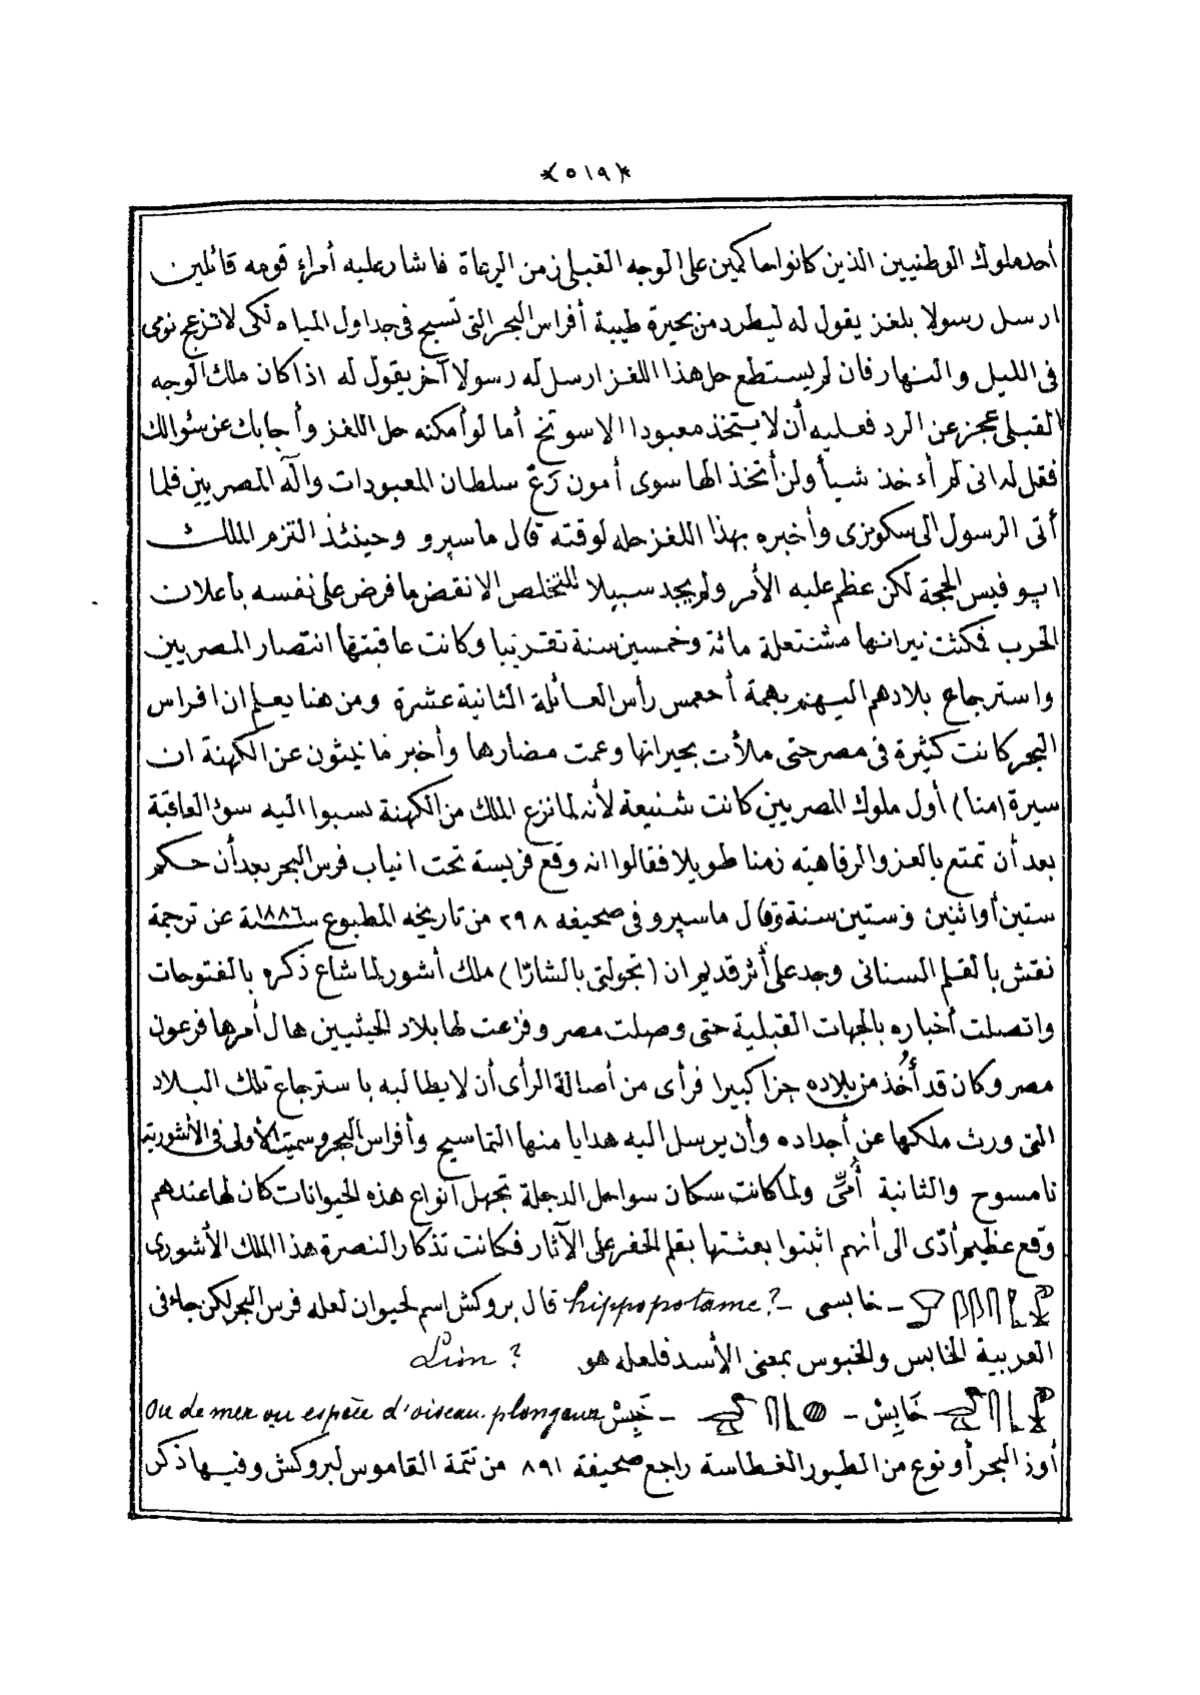 ﴿٥١٩﴾
أحد ملوك الوطنيين الذين كانوا حاكمين على الوجه القبلى زمن الرعاة فاشار عليه أمراء قومه قائلين
ارسل رسولا بلغز يقول له ليطرد من بحيرة طيبة أفراس البحر التى تسبح فى جداول المياه لكى لا تزعج نومى
فى الليل والنهار فان لم يستطع حل هذا اللغز ارسل له رسولا آخر يقول له اذا كان ملك الوجه
القبلى عجز عن الرد فعليه أن لا يتخذ معبودا الا سوتخ أما لو أمكنه حل اللغز وأجابك عن سئوالك
فقل له انى لم آءخذ شيأ ولن أتخذ الها سوى أمون رع سلطان المعبودات واله المصريين فلما
أتى الرسول الى سكونزى وأخبره بهذا اللغز حله لوقته قال ماسپرو وحينئذ التزم الملك
اپوفيس الحجة لكن عظم عليه الأمر ولم يجد سبيلا للتخلص الا نقض ما فرض على نفسه باعلان
الحرب فمكثت نيرانها مشتعلة مائة وخمسين سنة تقريبا وكانت عاقبتها انتصار المصريين
واسترجاع بلادهم اليهم بهمة أحعمس رأس العائلة الثانية عشرة ومن هنا يعلم ان افراس
البحر كانت كثيرة فى مصر حتى ملأت بحيراتها وعمت مضارها وأخبر مانيثون عن الكهنة ان
سيرة (منا) أول ملوك المصريين كانت شنيعة لأنه لما نزع الملك من الكهنة نسبوا اليه سوء العاقبة
بعد أن تمتع بالعز والرفاهية زمنا طويلا فقالوا انه وقع فريسة تحت انياب فرس البحر بعد أن حكم
ستين أو اثنين وستين سنة وقال ماسپرو فى صحيفه ٢٩٨ من تاريخه المطبوع سنة ١٨٨٦ عن ترجمة
نقش بالقلم السنانى وجد على أثر قديم ان (تجولتى بالشارّا) ملك أشور لما شاع ذكره بالفتوحات
واتصلت أخباره بالجهات القبلية حتى وصلت مصر وفزعت لها بلاد الحيثيين هال أمرها فرعون
مصر وكان قد أُخذ من بلاده جزا كبيرا فرأى من أصالة الرأى أن لا يطالبه باسترجاع تلك البلاد
التى ورث ملكها عن أجداده وأن يرسل اليه هدايا منها التماسيح وأفراس البحر وسميت الأولى فى الأشورية
نامسوح والثانية أُمىّ ولما كانت سكان سواحل الدجلة تجهل أنواع هذه الحيوانات كان لها عندهم
وقع عظيم أدّى الى أنهم اثبتوا بعثتها بقلم الحفر على الآثار فكانت تذكارا لنصرة هذا الملك الأشورى
– خابسى – hippopotame? قال بروكش اسم لحيوان لعله فرس البحر لكن جاء فى
العربية الخابس والخبوس بمعنى الأسد فلعله هو Lion ?
خَابِش – خَبِش – ou de mer ou espèce d'oiseau plongeur
أوز البحر أو نوع من الطيور الغطاسة راجع صحيفة ٨٩١ من تتمة القاموس لبروكش وفيها ذكر